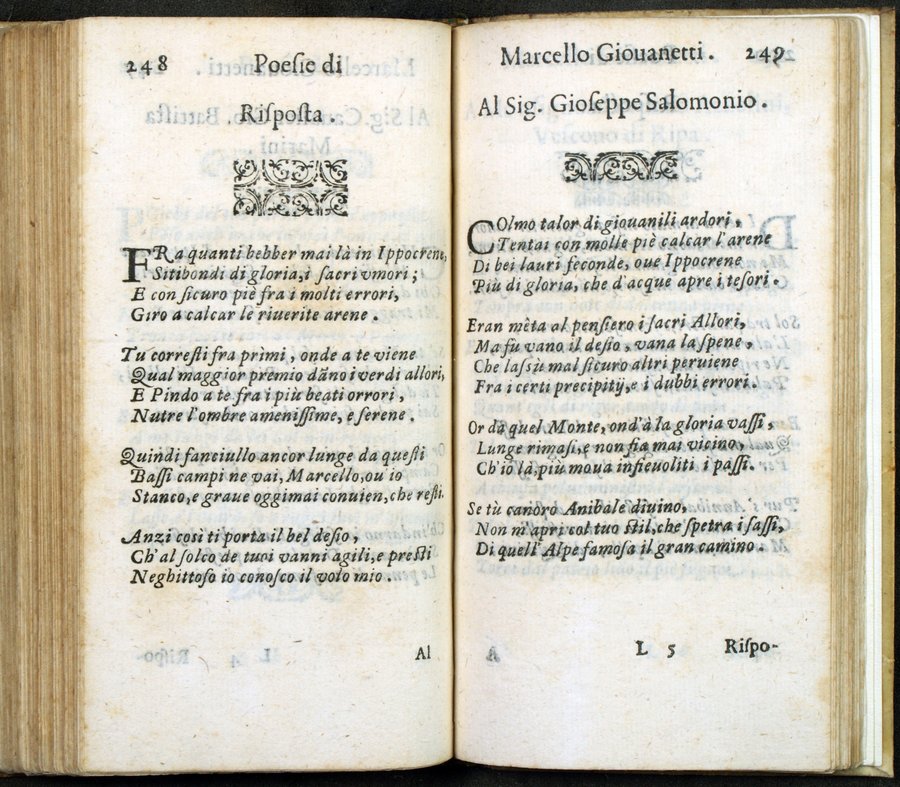 248 Poesie di
Risposta.
FRa quanti bebber mai là in Ippocrene,
Sitibondi di gloria, i sacri vmori;
E con sicuro piè fra i molti errori,
Giro a calcar le riuerite arene.
Tu corresti fra primi, onde a te viene
Qual maggior premio dāno i verdi allori,
E Pindo a te fra i più beati orrori,
Nutre l'ombre amenissime, e serene.
Quindi fanciullo ancor lunge da questi
Bassi campi ne vai, Marcello, ou io
Stanco, e graue oggimai conuien, che resti.
Anzi così ti porta il bel desio,
Ch'al solco de tuoi vanni agili, e presti
Neghittoso io conosco il volo mio.
Al
Marcello Giouanetti. 249
Al Sig. Gioseppe Salomonio.
COlmo talor di giouanili ardori,
Tentai con molle piè calcar l'arene
Di bei lauri feconde, oue Ippocrene
Più di gloria, che d'acque apre i tesori.
Eran mèta al pensiero i sacri Allori,
Ma fù vano il desio, vana la spene,
Che lassù mal sicuro altri peruiene
Fra i certi precipitij, e i dubbi errori.
Or da quel Monte, ond'à la gloria vassi,
Lunge rimasi, e non fia mai vicino,
Ch'io là, più moua infieuoliti i passi.
Se tù canoro Anibale diuino,
Non m'apri col tuo stil, che spetra i sassi,
Di quell'Alpe famosa il gran camino.
L 5 Rispo-